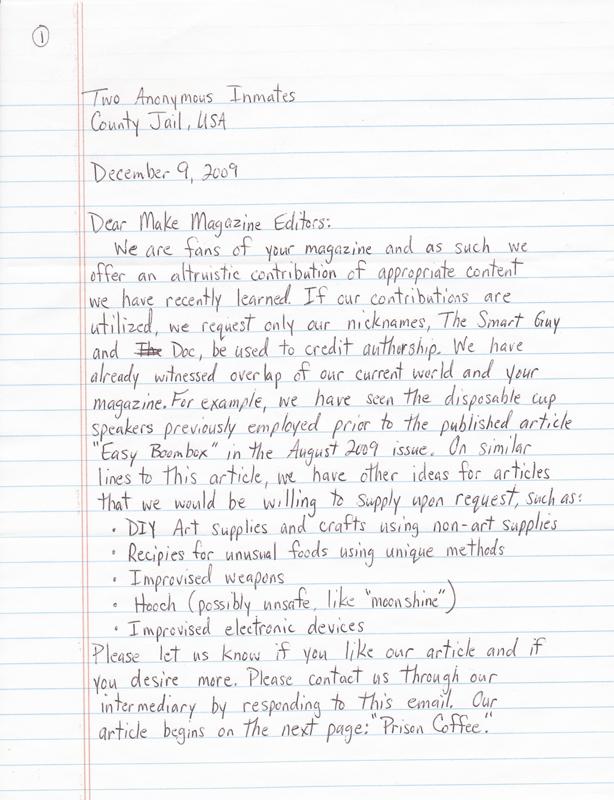 1
Two Anonymous Inmates
County Jail, USA
December 9, 2009
Dear Make Magazine Editors:
We are fans of your magazine and as such we
offer an altruistic contribution of appropriate content
we have recently learned. If our contributions are
utilized, we request only our nicknames, The Smart Guy
and The Doc, be used to credit authorship. We have
already witnessed overlap of our current world and your
magazine. For example, we have seen the disposable cup
speakers previously employed prior to the published article
"Easy Boombox" in the August 2009 issue. On similar
lines to this article, we have other ideas for articles
that we would be willing to supply upon request, such as:
• DIY Art supplies and crafts using non-art supplies
• Recipies for unusual foods using unique methods
• Improvised weapons
• Hooch (possibly unsafe, like "moonshine")
• Improvised electronic devices
Please let us know if you like our article and if
you desire more. Please contact us through our
intermediary by responding to this email. Our
article begins on the next page: "Prison Coffee."